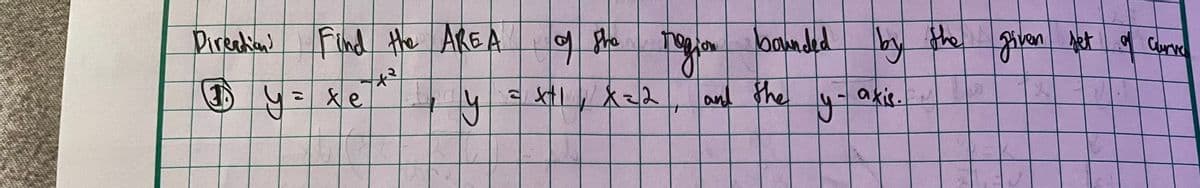 Directions: Find the AREA of the region bounded by the given set of curves
①. y = xe^-x², y = x+1, x=2, and the y-axis.